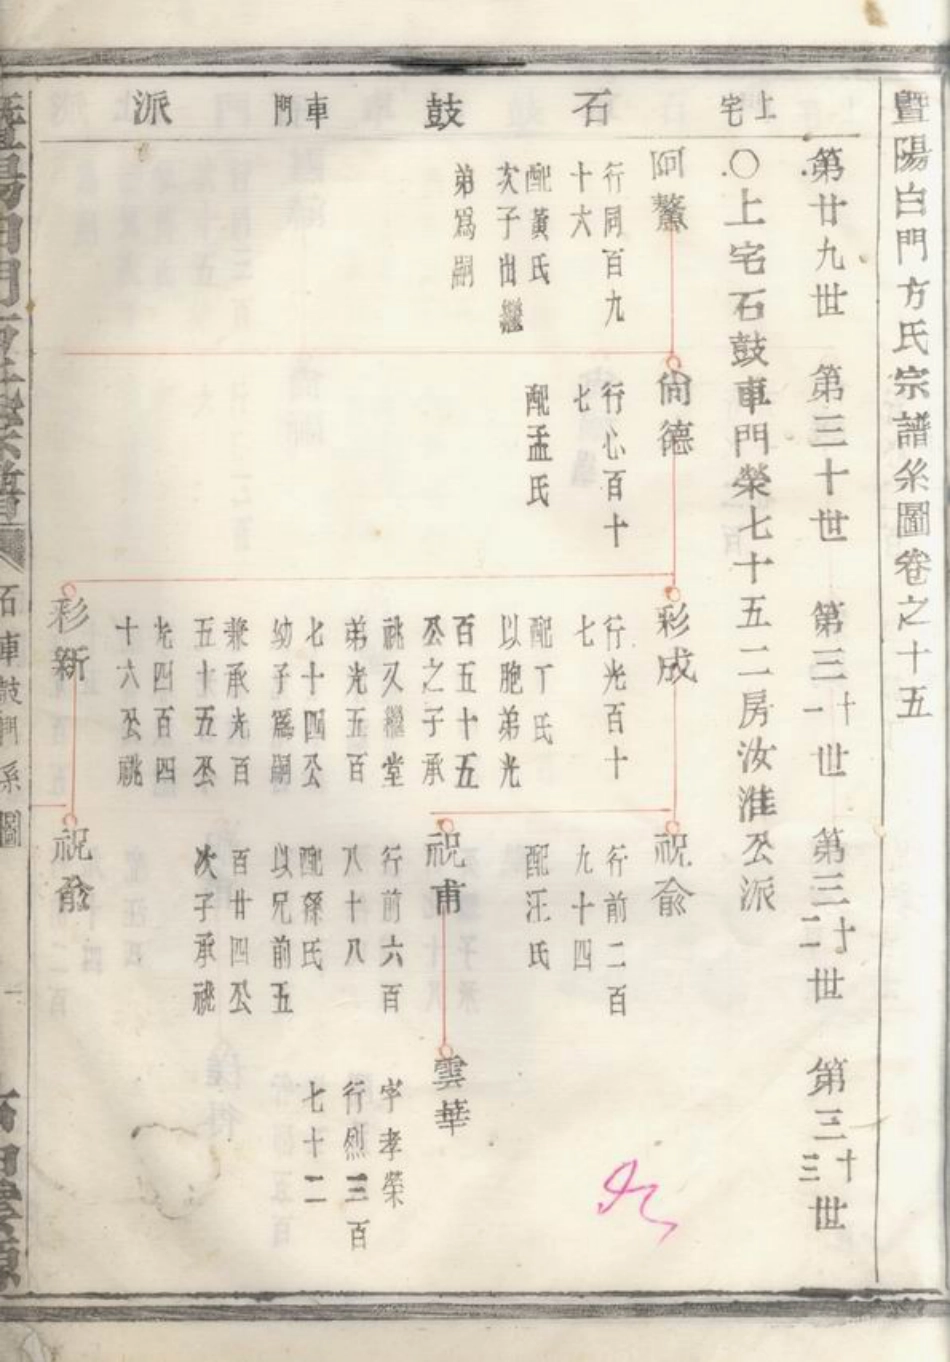 暨陽白門方氏宗譜系圖卷之十五
上宅 石 鼓 車門 派
第廿九世 第三十世 第三十一世 第三十二世 第三十三世
〇上宅石鼓車門榮七十五二房汝淮公派
阿鰲
行同百九
十六
配黃氏
次子出繼
弟爲嗣
尙德
行心百十
七
配孟氏
彩成
行光百十
七
配丁氏
以胞弟光
百五十五
公之子承
祧又繼堂
弟光五百
七十四公
幼子爲嗣
兼承光百
五十五公
光四百四
十六公祧
彩新
祝兪
行前二百
九十四
配汪氏
祝甫
行前六百
八十八
配孫氏
以兄前五
百廿四公
次子承祧
祝兪
雲華
字孝榮
行烈三百
七十二
暨陽白門方氏宗譜
石鼓車門系圖
一